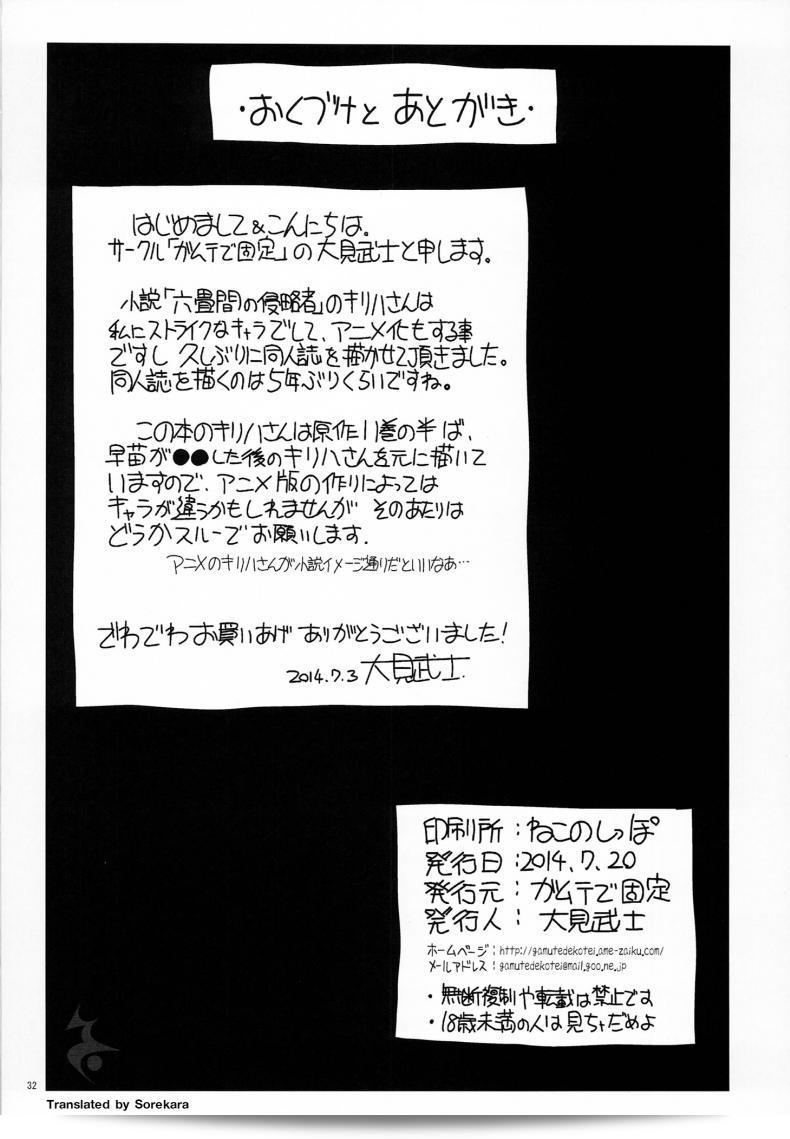 ・おくづけと あとがき・
はじめまして＆こんにちは。
サークル「ガムテで固定」の大見武士と申します。
小説「六畳間の侵略者」のキリハさんは
私にストライクなキャラでして、アニメ化もする事
ですし 久しぶりに同人誌を描かせて頂きました。
同人誌を描くのは5年ぶりくらいですね。
この本のキリハさんは原作11巻の半ば、
早苗が●●した後のキリハさんを元に描いて
いますので、アニメ版の作りによっては
キャラが違うかもしれませんが そのあたりは
どうかスルーでお願いします．
アニメのキリハさんが小説イメージ通りだといいなあ…
でわでわお買いあげ ありがとうございました!
2014.7.3 大見武士．
印刷所：ねこのしっぽ
発行日：2014.7.20
発行元：ガムテで固定
発行人：大見武士
ホームページ：http://gamutedekotei.ame-zaiku.com/
メールアドレス：gamutedekotei@mail.goo.ne.jp
・無断複制や転載は禁止です
・18歳未満の人は見ちゃだめよ
32
Translated by Sorekara